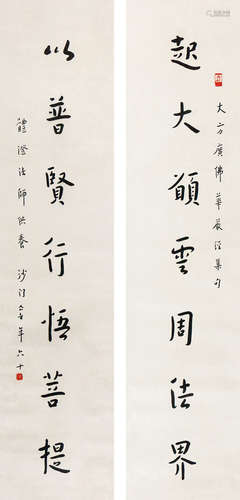 起大願雲周法界
大方廣佛華嚴經集句
以普賢行悟菩提
體澄法師供養 沙門 年六十